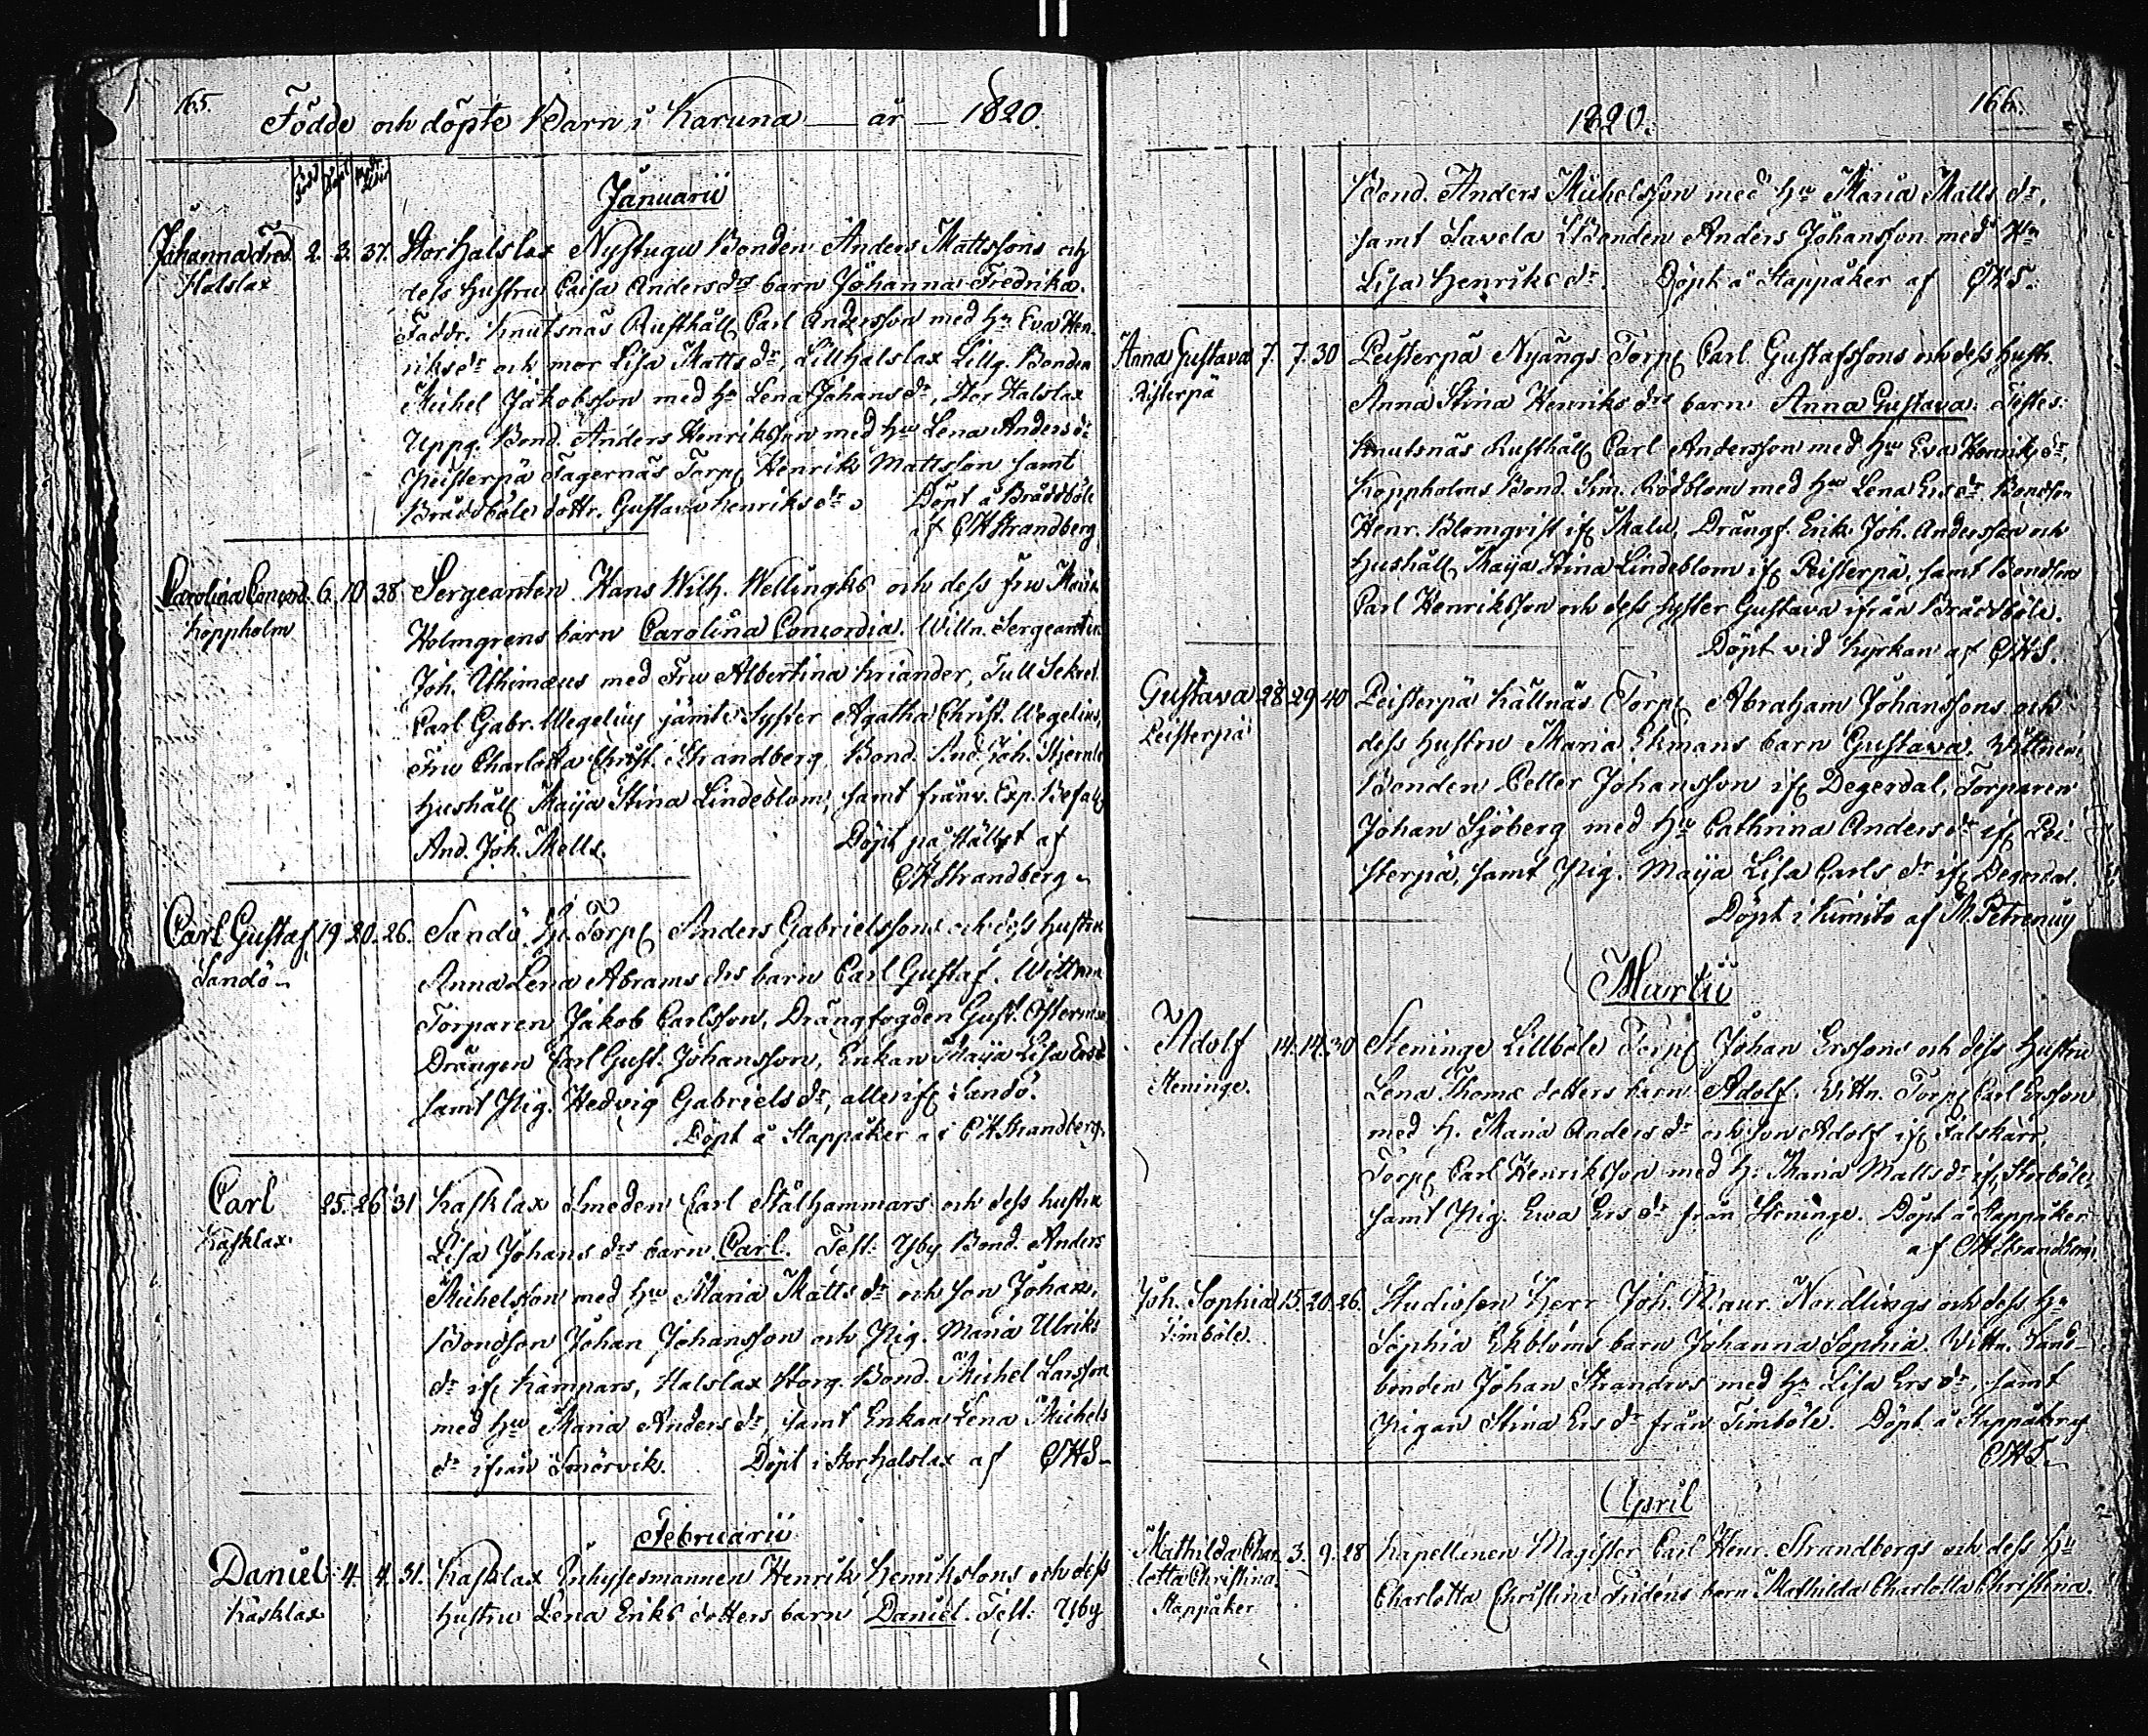 165. Födde och döpte Barn i Karuna — år — 1820.
Född Döpt
Januarii
Johanna Fred. 2. 3. 37. Storhalslax Nystugu Bonden Anders Mattssons och
Halslax dess hustru Caisa Anders drs barn Johanna Fredrika.
Faddr. Knutsnäs Rusthåll Carl Andersson med Hu Eva Hen-
riks dr och mor Lisa Matts dr, Lillhalslax Lillg. Bonden
Michel Jakobsson med Hu Lena Johans dr, Stor Halslax
Uppg. Bond. Anders Henriksson med Hu Lena Anders dr
Peisterpä Fagernäs Torp. Henrik Mattsson samt
Bräddböle dottr. Gustava Henriks dr. Döpt å Bräddböle
af CHStrandberg
Carolina Concord. 6. 10. 38. Sergeanten Hans Wilh. Wellingks och dess fru Maria
Koppholm Holmgrens barn Carolina Concordia. Wittn. Sergeanten
Joh. Uhimæus med Fru Albertina Kriander, Tull Sekret.
Carl Gabr. Wegelius jämte Syster Agatha Christ. Wegelius,
Fru Charlotta Christ. Strandberg, Bond. And. Joh.
Hushåll. Maija Stina Lindeblom, samt frånv. Exp. Befall
And. Joh. Mells. Döpt på stället af
CHStrandberg
Carl Gustaf 19. 20. 26. Sandö Torp. Anders Gabrielssons och dess hustru
Sandö Anna Lena Abrams drs barn Carl Gustaf. Wittnen
Torparen Jakob Carlsson, Drängfogden Gust.
Drängen Carl Gust. Johansson, Enkan Maija Lisa Ers dr
samt Pig. Hedvig Gabriels dr, alla if. Sandö.
Döpt å Stappåker af CHStrandberg
Carl 25. 26. 31 Kasklax Smeden Carl Stålhammars och dess hustru
Kasklax Lisa Johans drs barn Carl. Test: Yby Bond. Anders
Michelsson med Hu Maria Matts dr och son Johan,
Bondson Johan Johansson och Pig. Maria Ulriks
dr if. Kämpars, Halslax Storg. Bond. Michel Larsson
med Hu Maria Anders dr, samt Enkan Lena Michels
dr ifrån Smörvik. Döpt i Storhalslax af CHS
Februarii
Daniel 4. 4. 31. Kasklax Inhysesmannen Henrik Henrikssons och dess
Kasklax hustru Lena Eriks dotters barn Daniel. Test: Yby
1820. 166.
Bond. Anders Michelsson med Hu Maria Matts dr,
samt Lavela Bonden Anders Johansson med Hu
Lisa Henriks dr. Döpt å Stappåker af CHS.
Anna Gustava 7. 7. 30 Peisterpä Nyängs Torp. Carl Gustafssons och dess hustr.
Peisterpä Anna Stina Henriks drs barn Anna Gustava. Testes:
Knutsnäs Rusthåll. Carl Andersson med Hu Eva Henriks dr,
Koppholms Bond. Sim. Rödblom med Hu Lena Ers dr Bondson
Henr. Blomqvist if. Malu, Drängf. Erik Joh. Andersson och
Hushåll. Maija Stina Lindeblom if. Peisterpä, samt Bondson
Carl Henriksson och dess syster Gustava ifrån Bräddböle.
Döpt vid kyrkan af CHS.
Gustava 28. 29. 40 Peisterpä Källnäs Torp. Abraham Johanssons och
Peisterpä dess hustru Maria Ekmans barn Gustava. Wittnen
Bonden Petter Johansson if. Degerdal, Torparen
Johan Sjöberg med Hu Cathrina Anders dr if. Pei-
sterpä, samt Pig. Maija Lisa Carls dr if. Degerdal.
Döpt i Kimito af M. Petrenius
Martii
Adolf 14. 14. 30 Steninge Lillböle Torp. Johan Erssons och dess Hustru
Steninge. Lena Thomæ dotters barn Adolf. Vittn. Torp. Carl Ersson
med H. Maria Anders dr och son Adolf if. Falskärr,
Torp. Carl Henriksson med H. Maria Matts dr if. Storböle,
samt Pig. Ewa Ers dr från Steninge. Döpt å Stappåker
af CHStrandberg.
Joh. Sophia 15. 20. 26. Studiosen Herr Joh. Maur. Nordlings och dess H.
Timböle. Sophia Ekbloms barn Johanna Sophia. Vittn. Land-
bonden Johan Strandros med H. Lisa Ers dr, samt
Pigan Stina Ers dr från Timböle. Döpt å Stappåker af
CHS.
April
Mathilda Char- 3. 9. 28 Kapellanen Magister Carl Henr. Strandbergs och dess Hu
lotta Christina. Charlotta Christina Fridens barn Mathilda Charlotta Christina.
Stappåker